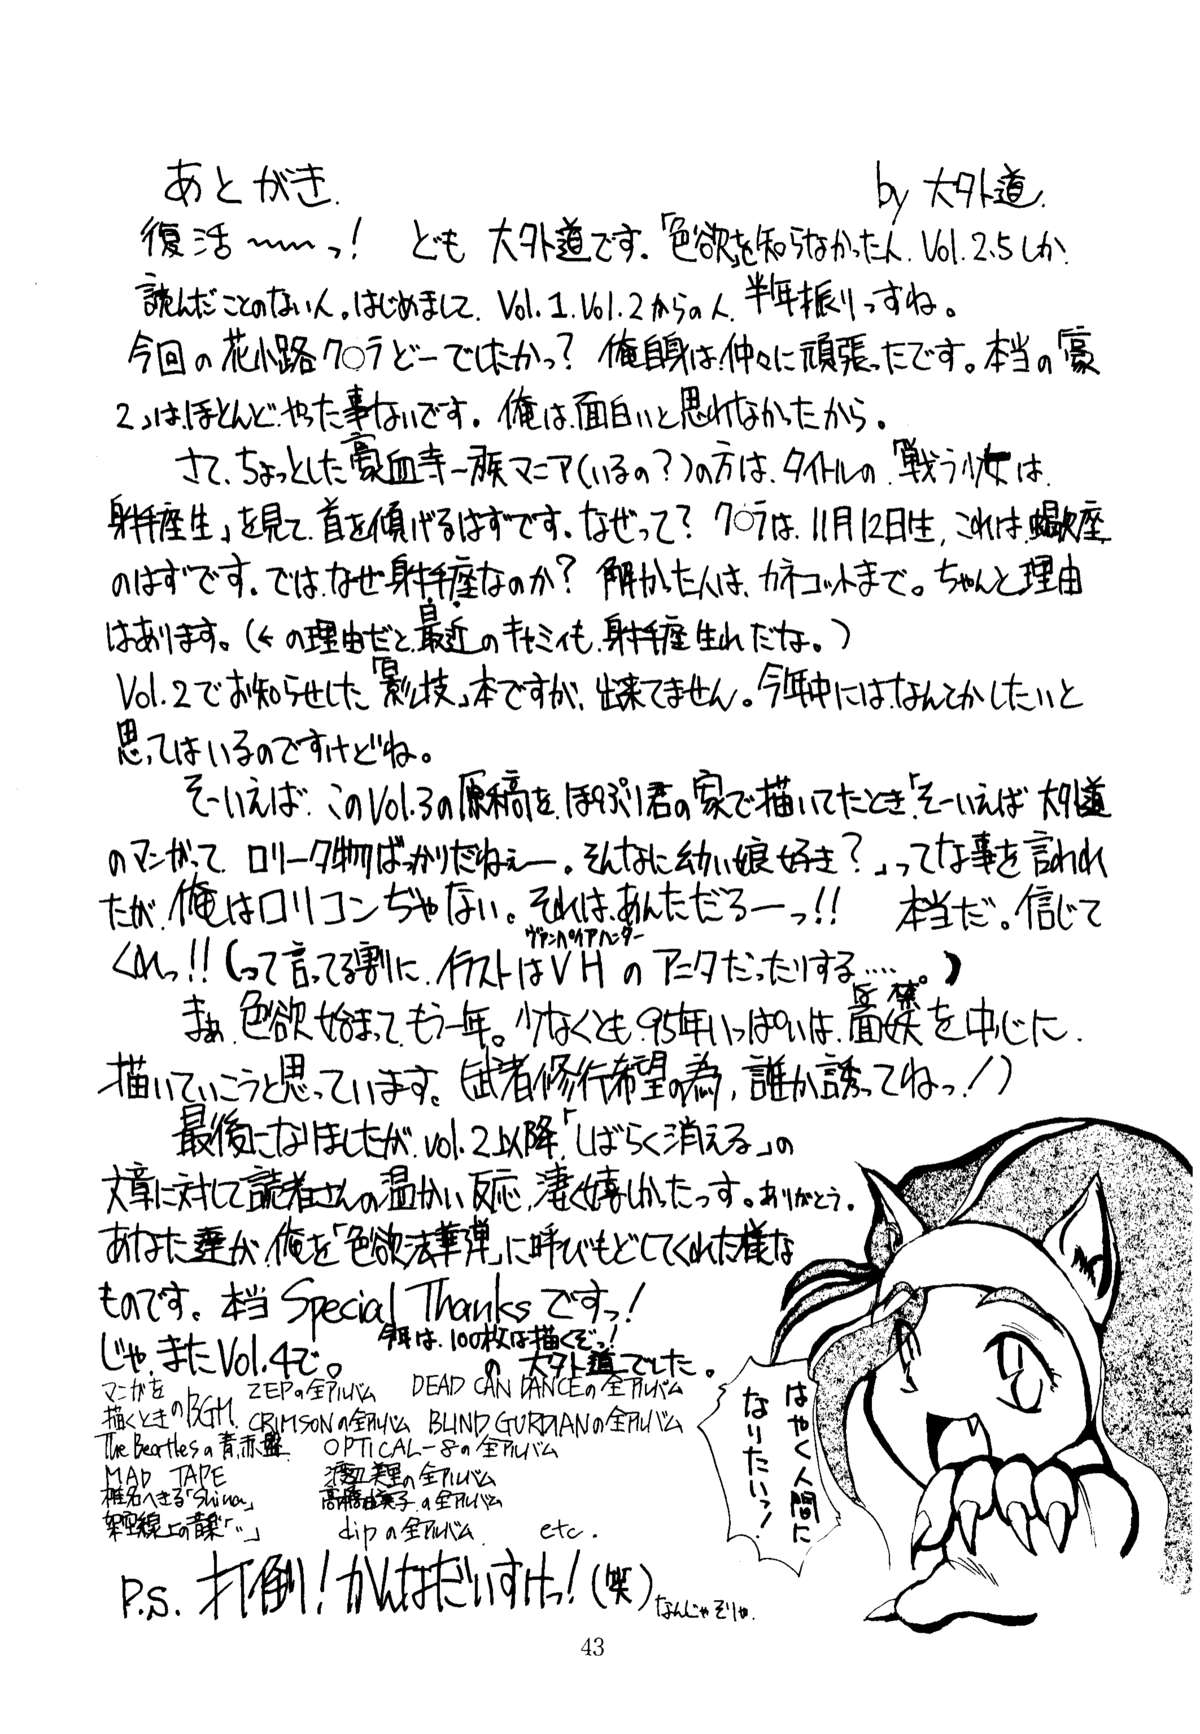 あとがき. by 大外道.
復活〜〜〜っ! ども 大外道です。「色欲」を知らなかった人、Vol.2.5しか
読んだことのない人。はじめまして、Vol.1、Vol.2からの人、半年振りっすね。
今回の花小路ク○ラどーでしたかっ? 俺自身は、仲々に頑張ったです。本当の「豪
2」は、ほとんど、やった事ないです。俺は、面白いと思れなかったから。
さて、ちょっとした豪血寺一族マニア(いるの?)の方は、タイトルの「戦う少女は、
射手座生」を見て、首を傾げるはずです。なぜって? ク○ラは、11月12日生、これは、蠍座
のはずです。では、なぜ射手座なのか? 解かった人は、カネコットまで。ちゃんと理由
はあります。(くの理由だと、最近のキャミィも、射手座生れだな。)
Vol.2でお知らせした「影技」本ですが、出来てません。今年中には、なんてかしたいと
思ってはいるのですけどね。
そーいえば、このVol.3の原稿を、ぽぷり君の家で描いてたとき「そーいえば 大外道
のマンガって ロリータ物ばっかりだねぇー。そんなに幼い娘好き?」ってな事を言われ
たが、俺はロリコンぢゃない。それは、あんただろーっ!! 本当だ。信じて
くれっ!!(って言ってる割に、イラストはVHのアニタだったりする……。)
ヴァンパイアハンター
まぁ、色欲始まって、もう一年。少なくとも、95年いっぱいは、を中心に、
描いていこうと思っています。(武者修行希望の為、誰か誘ってねっ!)
最後になりましたが、vol.2以降、「しばらく消える」の
文章に対して読者さんの温かい反応、凄く嬉しかったっす。ありがとう。
あなた達が、俺を「色欲法華弾」に呼びもどしてくれた様な
ものです。本当 Special Thanksですっ!
じゃ、またVol.4で。 今年は、100枚は描くぞっ!
の 大外道でした。
マンガを
描くときのBGM ZEPの全アルバム DEAD CAN DANCEの全アルバム
CRIMSONの全アルバム BLIND GURDIANの全アルバム
The Beartlesの青,赤盤 OPTICAL-8の全アルバム
MAD TAPE 渡辺美里の全アルバム
椎名へきる「Shiina」 高橋由美子の全アルバム
架空線上の音楽「"」 dipの全アルバム etc.
P.S. 打倒! かんなだいすけっ!(笑) なんじゃそりゃ.
はやく人間に
なりたいっ!
43